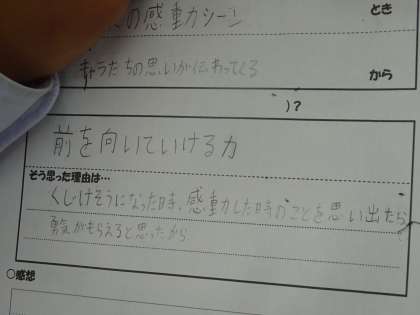 の感動シーン
とき
キャラたちの思いが伝わってくる
から
)?
前を向いていける力
そう思った理由は…
くじけそうになった時、感動した時のことを思い出たら
勇気がもらえると思ったから
○感想